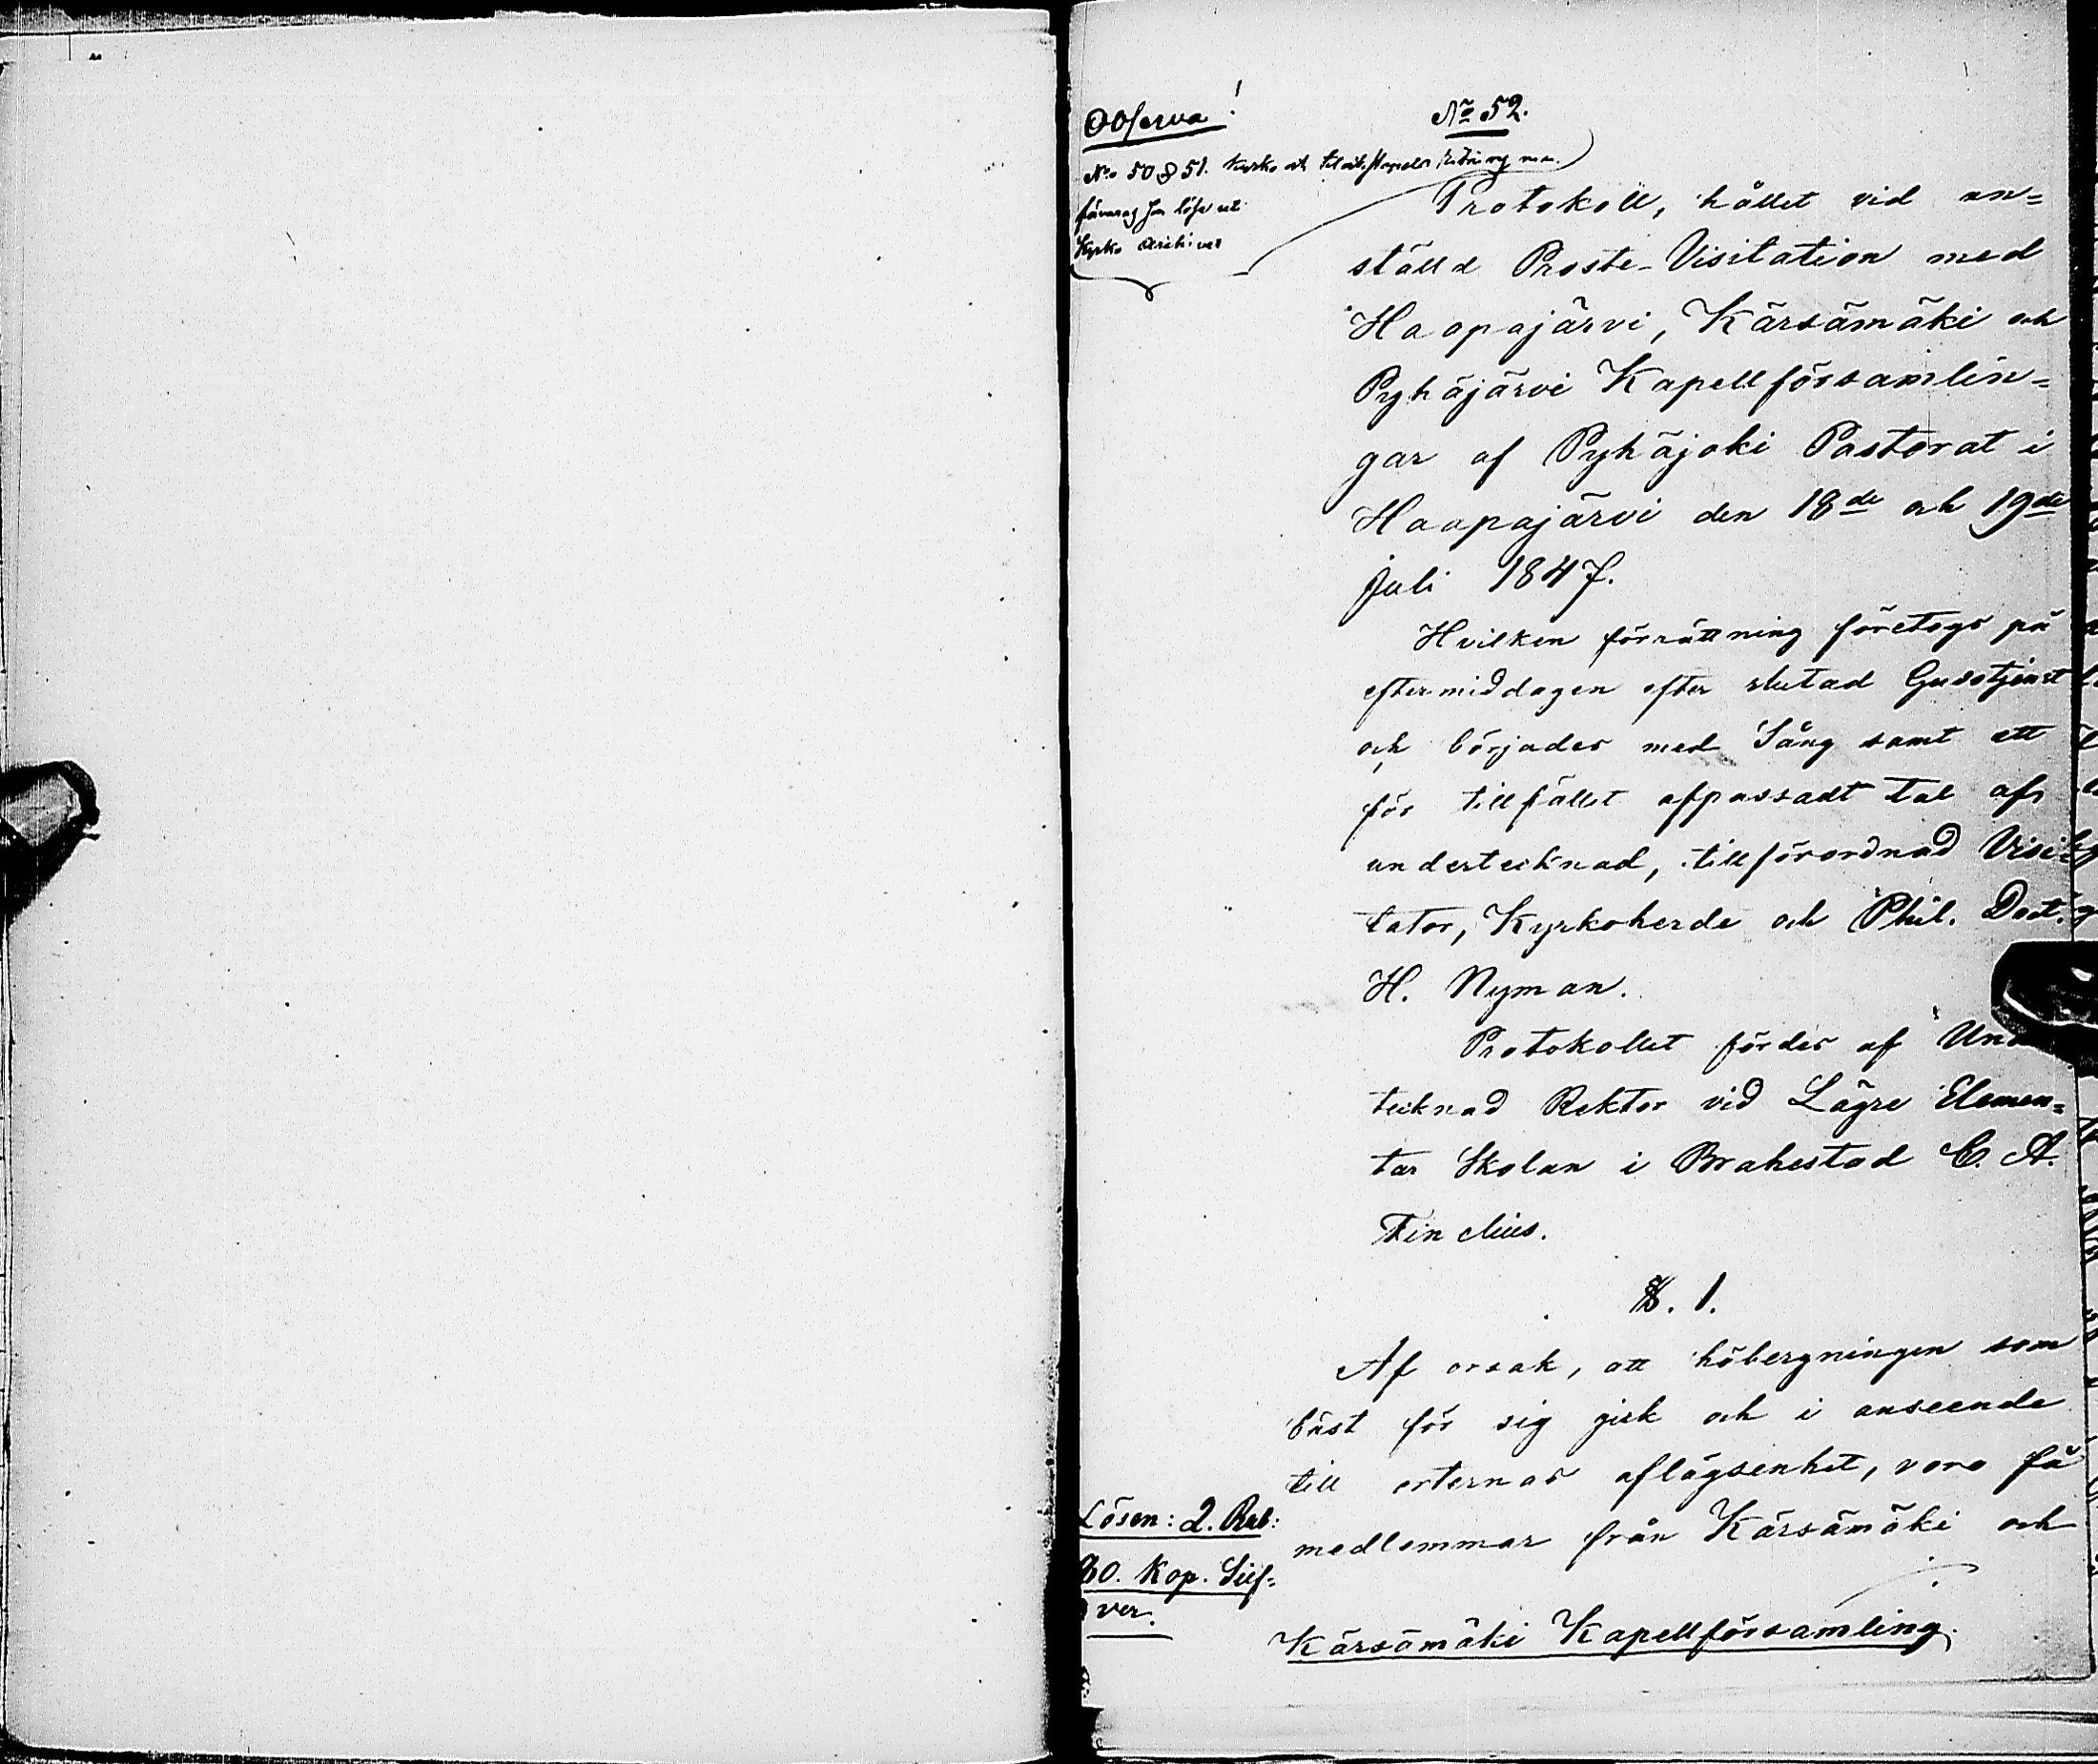 Observa!
No 52.
No 50 & 51. Kyrko och ritning
förvaras
Kyrko Archivet
Protokoll, hållet vid an=
ställd Proste-Visitation med
Haapajärvi, Kärsämäki och
Pyhäjärvi Kapellförsamlin=
gar af Pyhäjoki Pastorat i
Haapajärvi den 18de och 19de
Juli 1847.
Hvilken förrättning företogs på
eftermiddagen efter slutad Gudstjenst
och börjades med Sång samt ett
för tillfället afpassadt tal af
undertecknad, tillförordnad Visi=
tator, Kyrkoherde och Phil. Doct.
H. Nyman.
Protokollet fördes af Un
tecknad Rektor vid Lägre Elemen=
tar Skolan i Brahestad C. A.
§. 1.
Af orsak, att höbergningen som
bäst för sig gick och i anseende
till orternas aflägsenhet, voro få
medlemmar från Kärsämäki och
Lösen: 2. Rub:
80. Kop. Silf=
ver.
Kärsämäki Kapellförsamling.